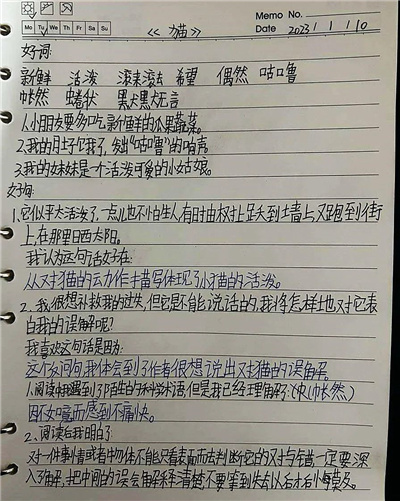 Memo No.
Mo Tu We Th Fr Sa Su
Date 2023/1/10
《猫》
好词:
新鲜 活泼 滚来滚去 希望 偶然 咕噜
怅然 蜷伏 默默无言
1.小朋友要多吃新鲜的瓜果蔬菜。
2.我的肚子饿了,发出“咕噜”的响声。
3.我的妹妹是一个活泼可爱的小姑娘。
好句:
1、它似乎太活泼了,一点儿也不怕生人,有时由树扑跃到墙上,又跑到街
上,在那里晒太阳。
我认为这句话好在:
从对猫的动作描写体现了小猫的活泼。
2、我很想补救我的过失,但它是不能说话的,我将怎样地对它表
白我的误解呢?
我喜欢这句话是因为:
这个反问句,我体会到了作者很想说出对猫的误解
1.阅读中我遇到了陌生的科学术语,但是我已经理解了:(如怅然)
因不如意而感到不痛快。
2、阅读后我明白了:
对一件事情或者物体不能只看表面而去判断它的对与错一定要深
入了解,把中间的误会解释清楚不要等到失去以后才后悔莫及。